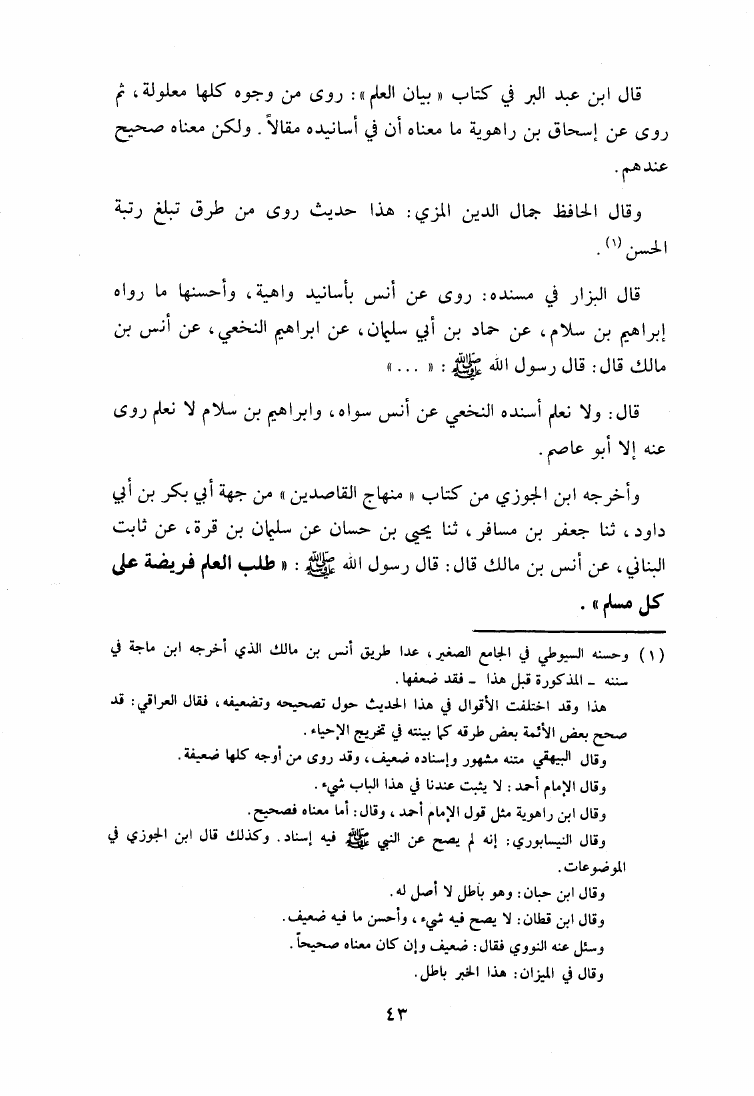 قال ابن عبد البر في كتاب «بيان العلم»: روى من وجوه كلها معلولة، ثم
روى عن إسحاق بن راهوية ما معناه أن في أسانيده مقالاً. ولكن معناه صحيح
عندهم.
وقال الحافظ جمال الدين المزي: هذا حديث روى من طرق تبلغ رتبة
الحسن (١).
قال البزار في مسنده: روى عن أنس بأسانيد واهية، وأحسنها ما رواه
إبراهيم بن سلام، عن حماد بن أبي سليمان، عن ابراهيم النخعي، عن أنس بن
مالك قال: قال رسول الله ﷺ: «...»
قال: ولا نعلم أسنده النخعي عن أنس سواه، وابراهيم بن سلام لا نعلم روى
عنه إلا أبو عاصم.
وأخرجه ابن الجوزي من كتاب «منهاج القاصدين» من جهة أبي بكر بن أبي
داود، ثنا جعفر بن مسافر، ثنا يحيى بن حسان عن سليمان بن قرة، عن ثابت
البناني، عن أنس بن مالك قال: قال رسول الله ﷺ: «طلب العلم فريضة على
كل مسلم».
(١) وحسنه السيوطي في الجامع الصغير، عدا طريق أنس بن مالك الذي أخرجه ابن ماجة في
سننه - المذكورة قبل هذا - فقد ضعفها.
هذا وقد اختلفت الأقوال في هذا الحديث حول تصحيحه وتضعيفه، فقال العراقي: قد
صحح بعض الأئمة بعض طرقه كما بينته في تخريج الإحياء.
وقال البيهقي متنه مشهور وإسناده ضعيف، وقد روى من أوجه كلها ضعيفة.
وقال الإمام أحمد: لا يثبت عندنا في هذا الباب شيء.
وقال ابن راهوية مثل قول الإمام أحمد، وقال: أما معناه فصحيح.
وقال النيسابوري: إنه لم يصح عن النبي ﷺ فيه إسناد. وكذلك قال ابن الجوزي في
الموضوعات.
وقال ابن حبان: وهو باطل لا أصل له.
وقال ابن قطان: لا يصح فيه شيء، وأحسن ما فيه ضعيف.
وسئل عنه النووي فقال: ضعيف وإن كان معناه صحيحاً.
وقال في الميزان: هذا الخبر باطل.
٤٣